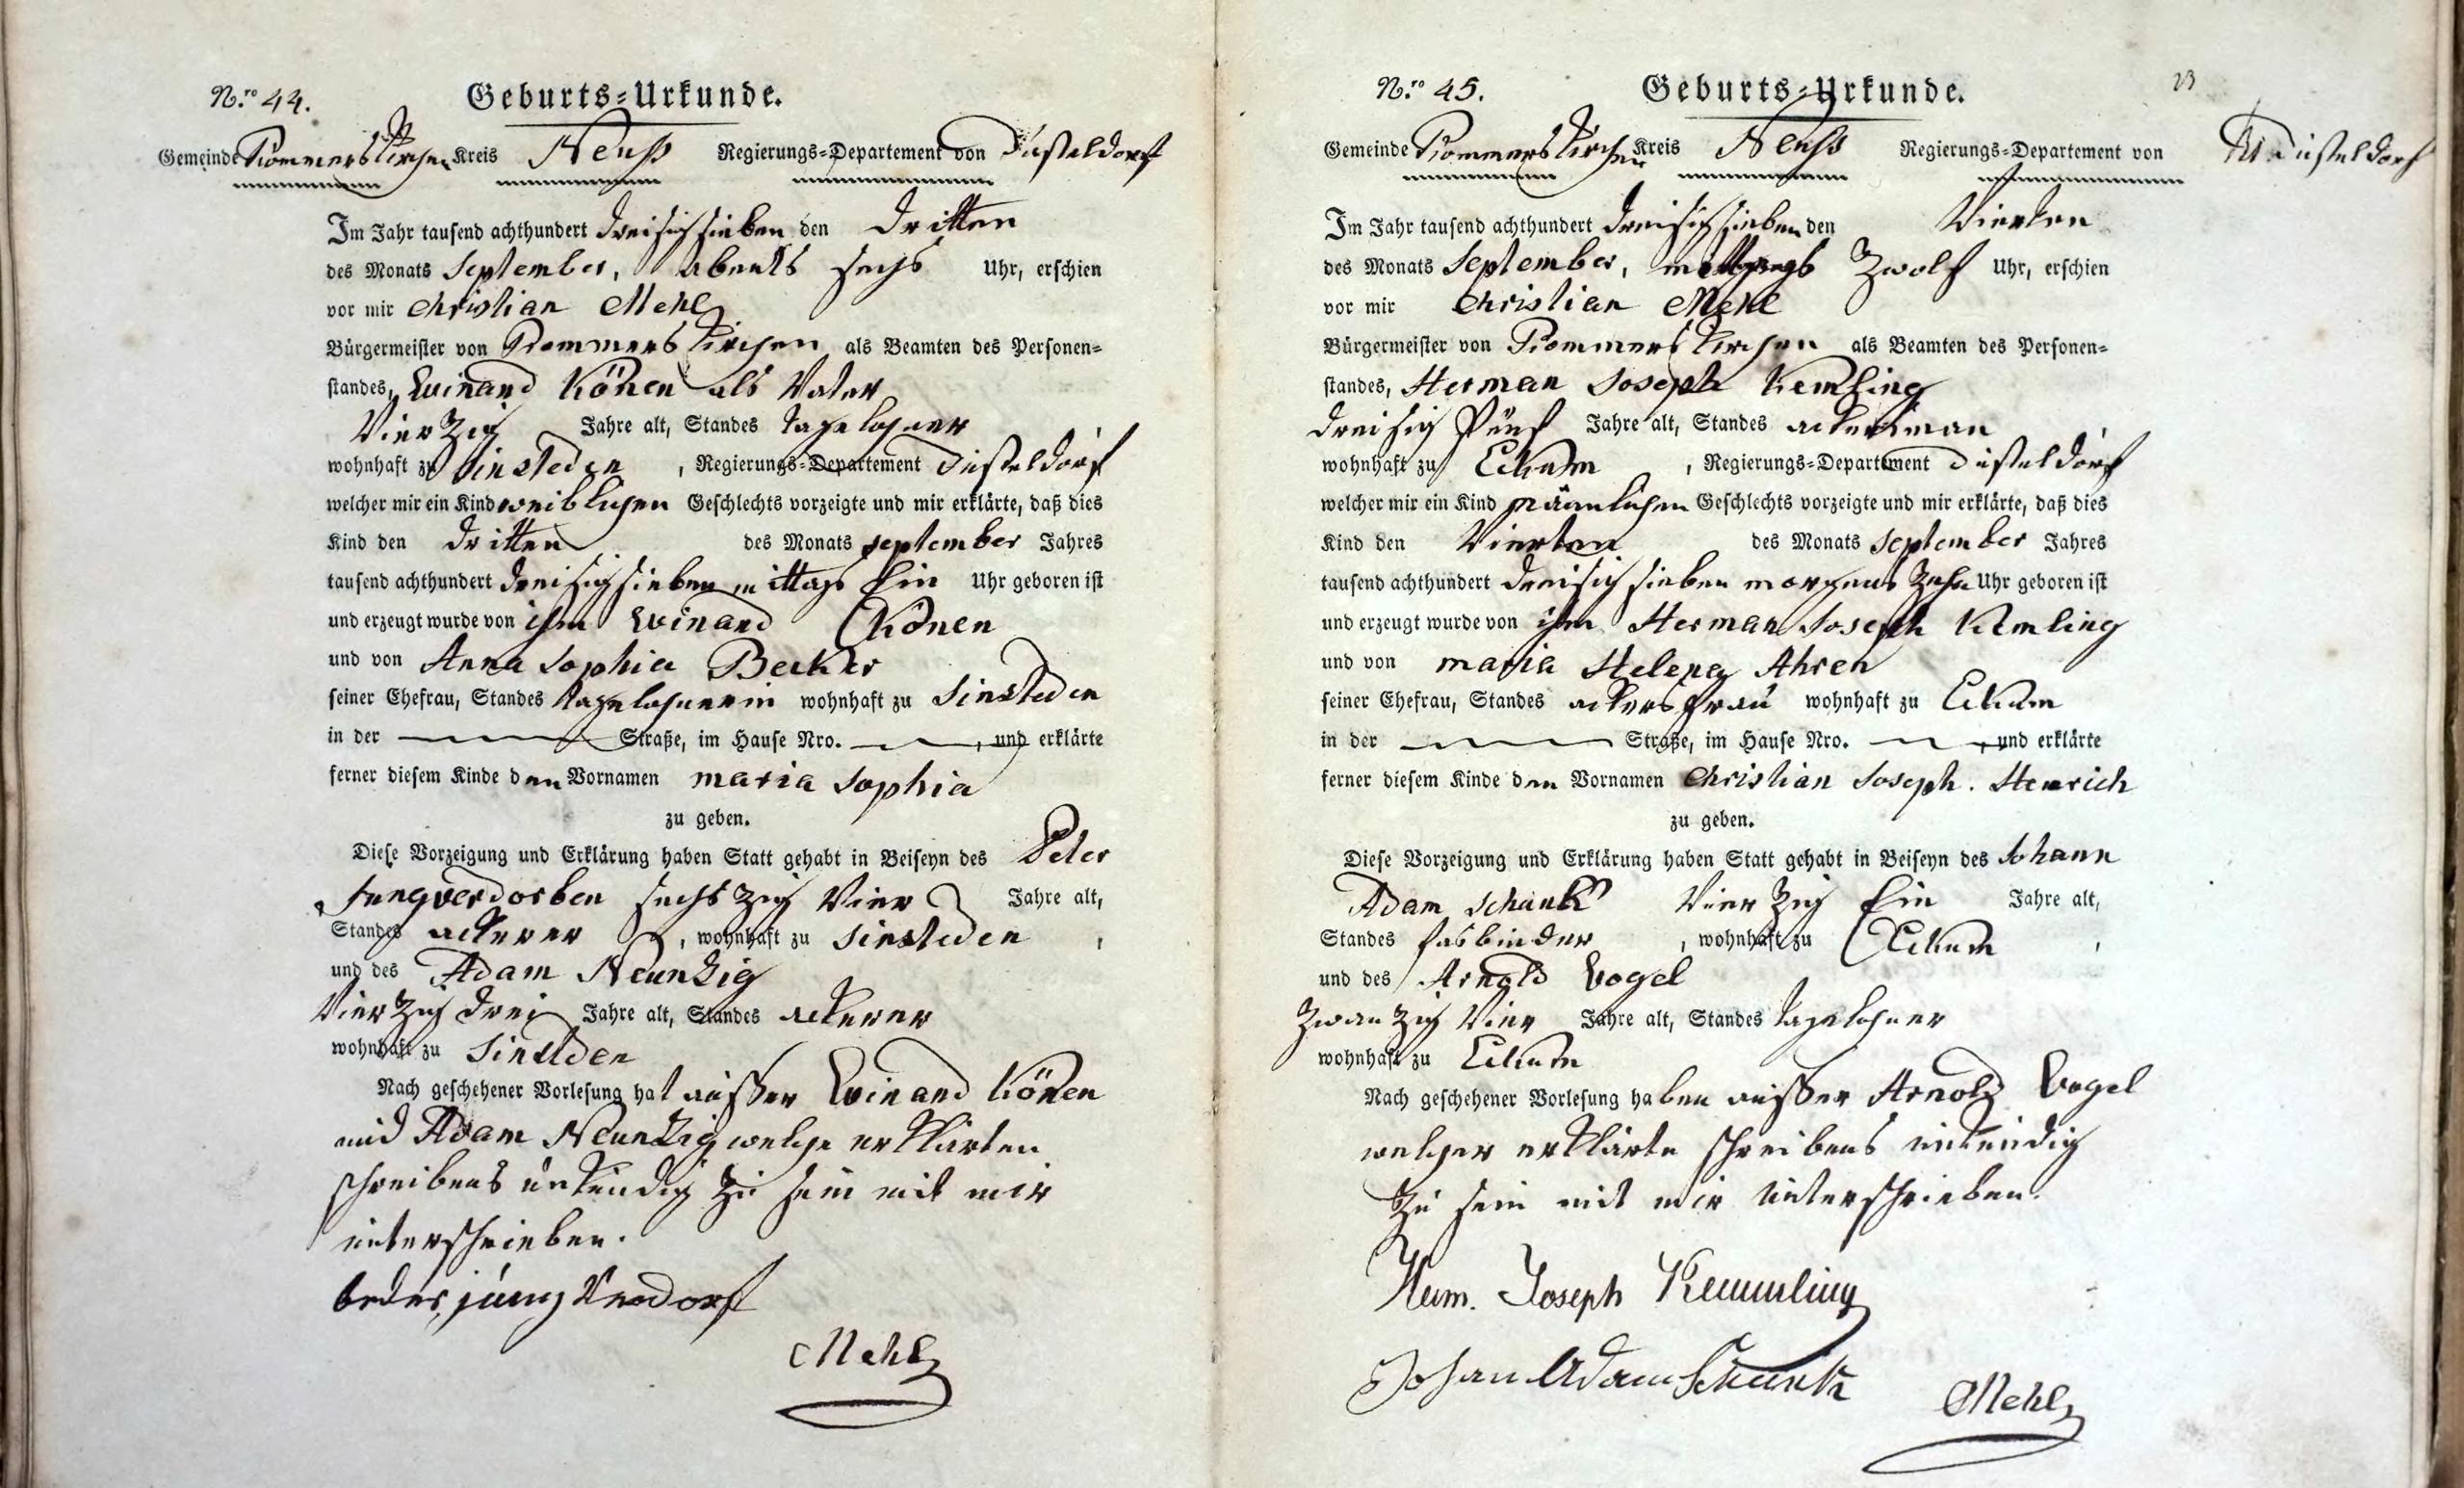 N.ro 44.
Geburts-Urkunde.
Gemeinde Rommerskirchen Kreis Neuß Regierungs-Departement von Düsseldorf
Im Jahr tausend achthundert dreisigsieben den dritten
des Monats September, abends sechs Uhr, erschien
vor mir Christian Mehl
Bürgermeister von Rommerskirchen als Beamten des Personen-
standes, Winand Könen als Vater
Vierzig Jahre alt, Standes tagelohner
wohnhaft zu Sinsteden, Regierungs-Departement Düsseldorf
welcher mir ein Kind weiblichen Geschlechts vorzeigte und mir erklärte, daß dies
Kind den dritten des Monats September Jahres
tausend achthundert dreisigsieben mittags Ein Uhr geboren ist
und erzeugt wurde von ihm Winand Könen
und von Anna Sophia Becker
seiner Ehefrau, Standes tagelohnerin wohnhaft zu Sinsteden
in der Straße, im Hause Nro. , und erklärte
ferner diesem Kinde den Vornamen maria Sophia
zu geben.
Diese Vorzeigung und Erklärung haben Statt gehabt in Beiseyn des Peter
Jungverdorben sechszig Vier Jahre alt,
Standes ackerer, wohnhaft zu Sinsteden,
und des Adam Neunzig
Vierzig drei Jahre alt, Standes ackerer
wohnhaft zu Sinsteden
Nach geschehener Vorlesung hat außer Winand Könen
und Adam Neunzig welche erklärten
schreibens unkundig zu sein mit mir
unterschrieben.
beder jungverdorf
Mehl
N.ro 45.
Geburts-Urkunde.
23
Gemeinde Rommerskirchen Kreis Neuß Regierungs-Departement von Düsseldorf
Im Jahr tausend achthundert dreisigsieben den Vierten
des Monats September, mittags Zwolf Uhr, erschien
vor mir Christian Mehl
Bürgermeister von Rommerskirchen als Beamten des Personen-
standes, Herman Joseph Kemling
dreisig Fünf Jahre alt, Standes ackersman
wohnhaft zu Eckum, Regierungs-Departement Düsseldorf
welcher mir ein Kind mänlichen Geschlechts vorzeigte und mir erklärte, daß dies
Kind den Vierten des Monats September Jahres
tausend achthundert dreisigsieben morgens Zehn Uhr geboren ist
und erzeugt wurde von ihm Herman Joseph Kemling
und von maria Helena Ahren
seiner Ehefrau, Standes ackersfrau wohnhaft zu Eckum
in der Straße, im Hause Nro. , und erklärte
ferner diesem Kinde den Vornamen Christian Joseph. Henrich
zu geben.
Diese Vorzeigung und Erklärung haben Statt gehabt in Beiseyn des Johann
Adam Schunk Vierzig Ein Jahre alt,
Standes fasbinder, wohnhaft zu Eckum,
und des Arnold Vogel
Zwanzig Vier Jahre alt, Standes tagelohner
wohnhaft zu Eckum
Nach geschehener Vorlesung haben außer Arnold Vogel
welcher erklärte schreibens unkundig
zu sein mit mir unterschrieben.
Herm. Joseph Kemmling
Johan Adam Schunk
Mehl